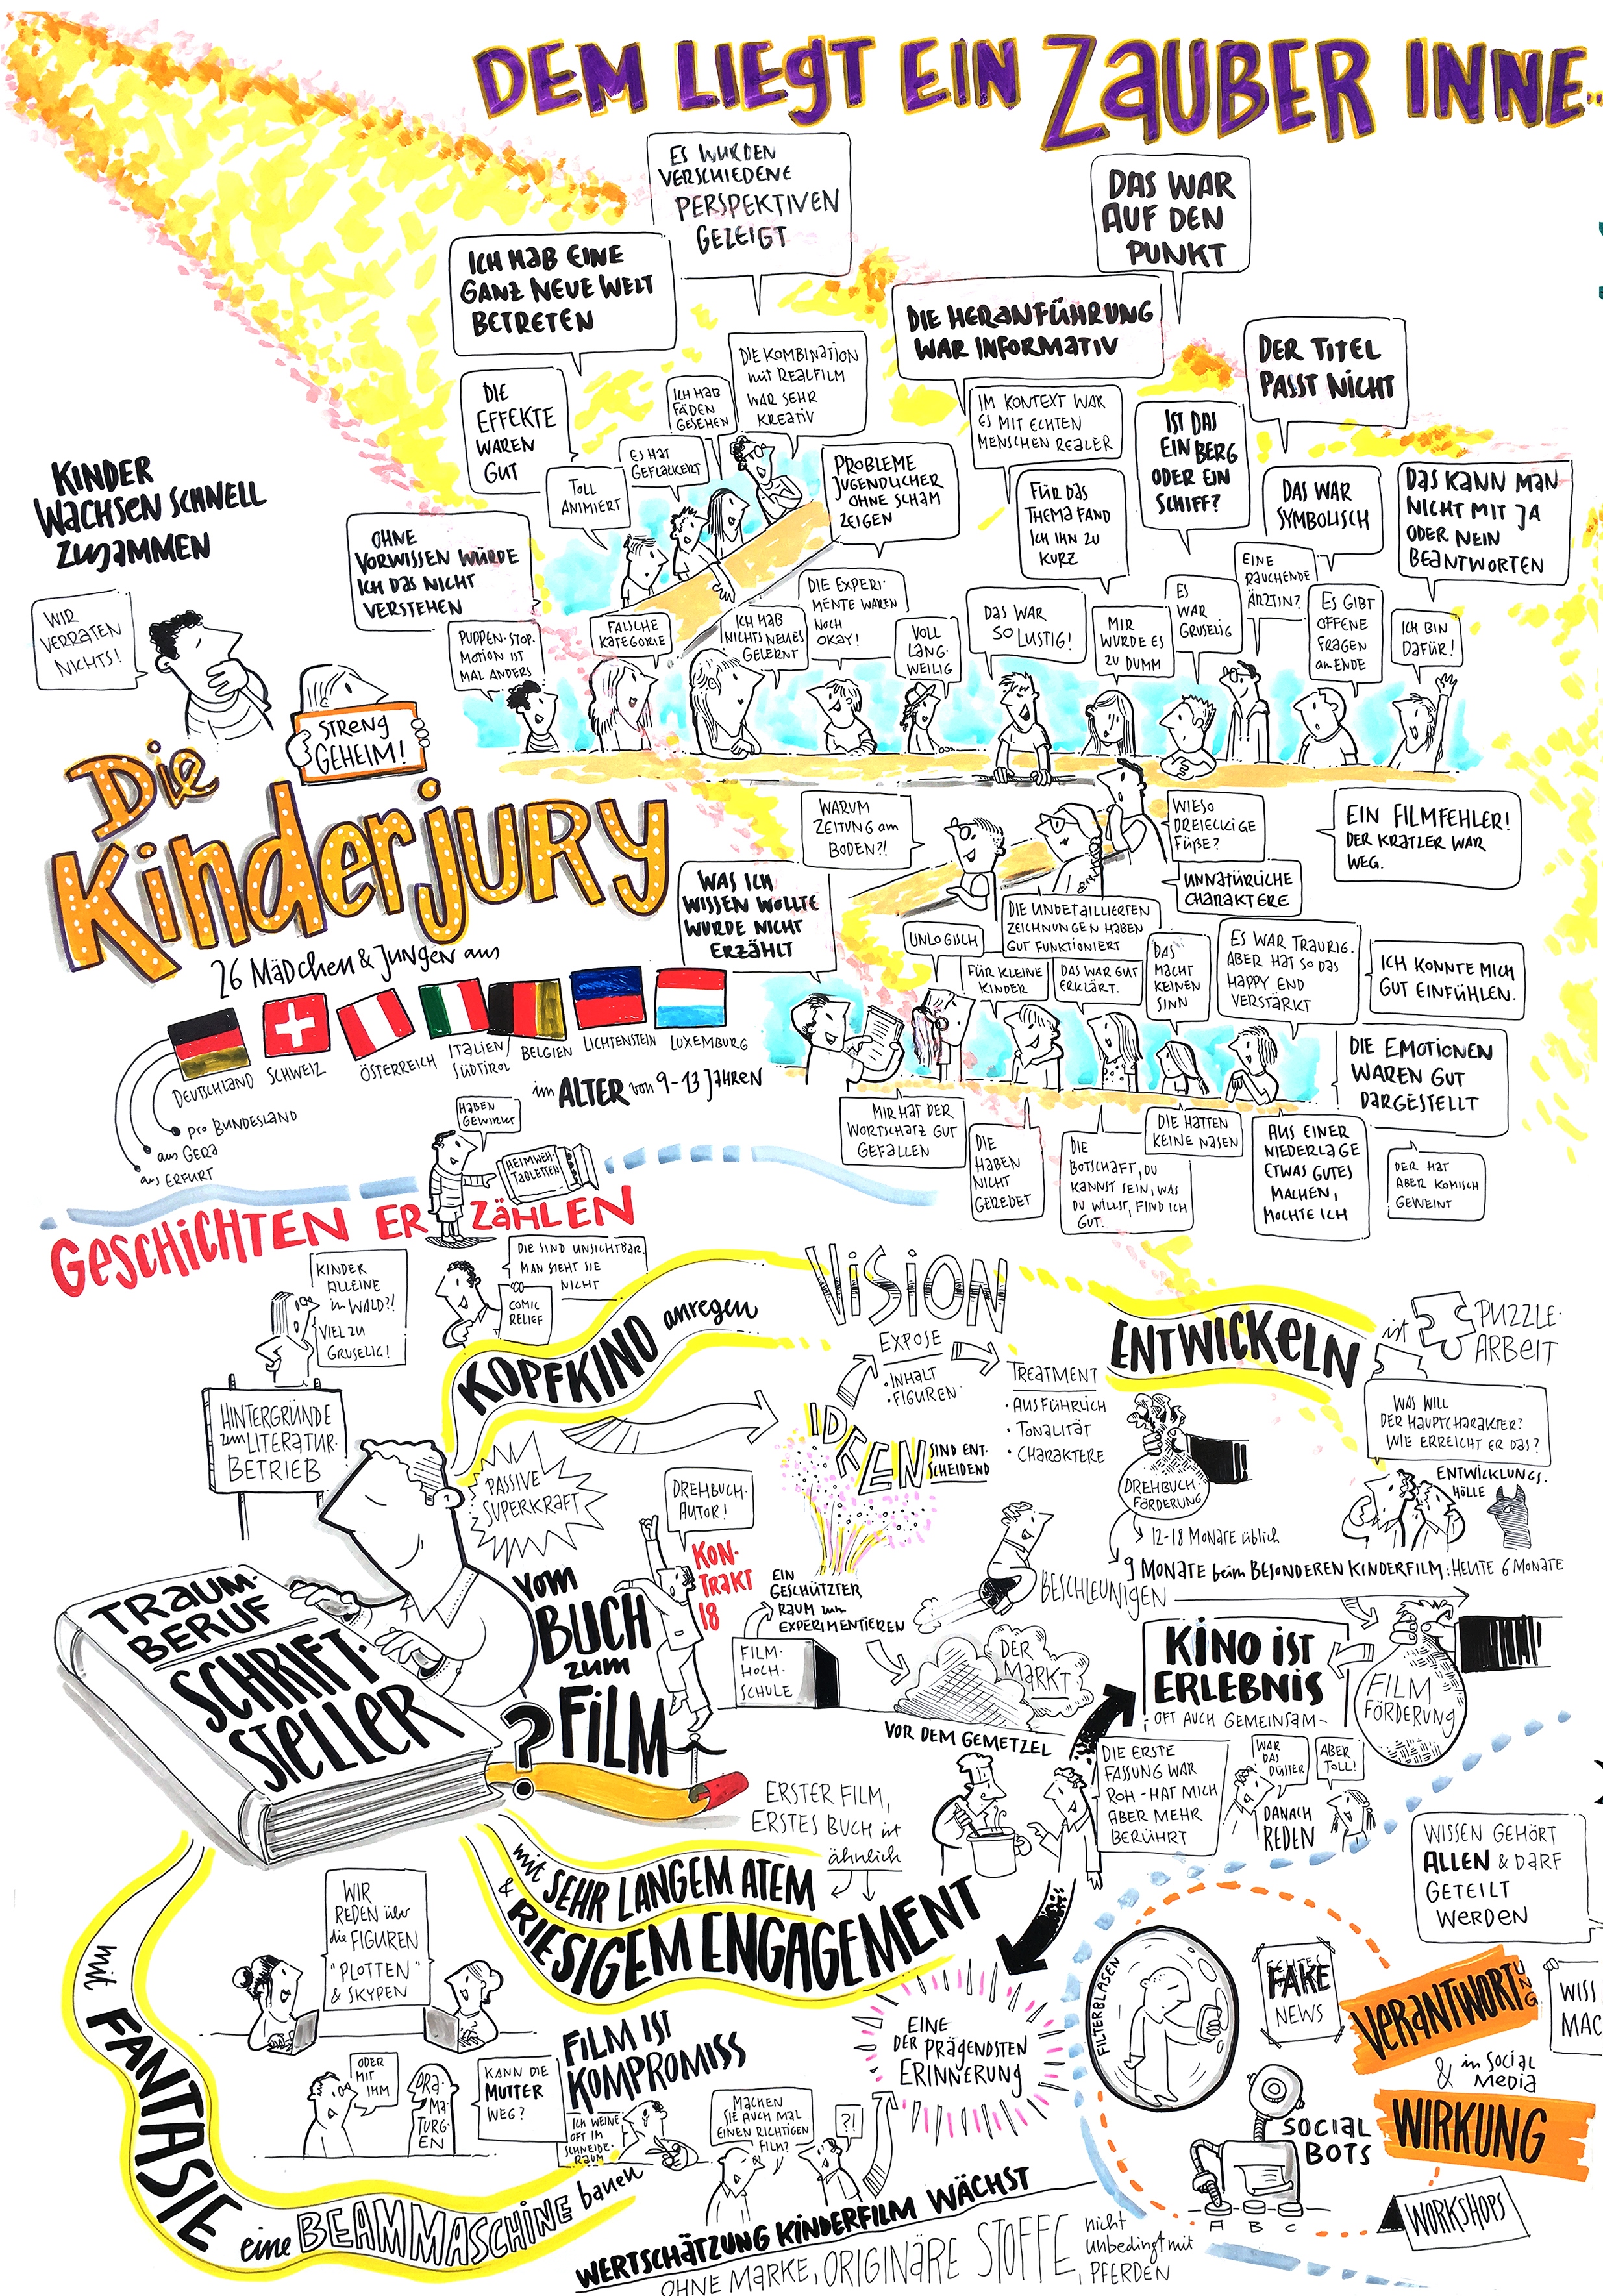 DEM LIEGT EIN ZAUBER INNE..
ES WURDEN
VERSCHIEDENE
PERSPEKTIVEN
GEZEIGT
DAS WAR
AUF DEN
PUNKT
ICH HAB EINE
GANZ NEUE WELT
BETRETEN
DIE HERANFÜHRUNG
WAR INFORMATIV
DER TITEL
PASST NICHT
DIE
EFFEKTE
WAREN
GUT
ICH HAB
FÄDEN
GESEHEN
DIE KOMBINATION
mit REALFILM
WAR SEHR
KREATIV
IM KONTEXT WAR
ES MIT ECHTEN
MENSCHEN REALER
IST DAS
EIN BERG
ODER EIN
SCHIFF?
TOLL
ANIMIERT
ES HAT
GEFLACKERT
PROBLEME
JUGENDLICHER
OHNE SCHAM
ZEIGEN
FÜR DAS
THEMA FAND
ICH IHN ZU
KURZ
DAS WAR
SYMBOLISCH
DAS KANN MAN
NICHT MIT JA
ODER NEIN
BEANTWORTEN
KINDER
WACHSEN SCHNELL
ZUSAMMEN
WIR
VERRATEN
NICHTS!
STRENG
GEHEIM!
OHNE
VORWISSEN WÜRDE
ICH DAS NICHT
VERSTEHEN
PUPPEN-STOP-
MOTION IST
MAL ANDERS
FALSCHE
KATEGORIE
ICH HAB
NICHTS NEUES
GELERNT
DIE EXPERI-
MENTE WAREN
NOCH
OKAY!
VOLL
LANG-
WEILIG
DAS WAR
SO LUSTIG!
MIR
WURDE ES
ZU DUMM
ES
WAR
GRUSELIG
EINE
RAUCHENDE
ÄRZTIN?
ES GIBT
OFFENE
FRAGEN
am ENDE
ICH BIN
DAFÜR!
Die
Kinderjury
26 MÄDCHEN & JUNGEN aus
DEUTSCHLAND
SCHWEIZ
ÖSTERREICH
ITALIEN/
SÜDTIROL
BELGIEN
LICHTENSTEIN
LUXEMBURG
pro BUNDESLAND
aus GERA
aus ERFURT
im ALTER von 9-13 JAHREN
WARUM
ZEITUNG am
BODEN?!
WIESO
DREIECKIGE
FÜßE?
EIN FILMFEHLER!
DER KRATZER WAR
WEG.
UNNATÜRLICHE
CHARAKTERE
WAS ICH
WISSEN WOLLTE
WURDE NICHT
ERZÄHLT
DIE UNDETAILLIERTEN
ZEICHNUNGEN HABEN
GUT FUNKTIONIERT
UNLOGISCH
FÜR KLEINE
KINDER
DAS WAR GUT
ERKLÄRT.
DAS
MACHT
KEINEN
SINN
ES WAR TRAURIG.
ABER HAT SO DAS
HAPPY END
VERSTÄRKT
ICH KONNTE MICH
GUT EINFÜHLEN.
DIE EMOTIONEN
WAREN GUT
DARGESTELLT
MIR HAT DER
WORTSCHATZ GUT
GEFALLEN
DIE
HABEN
NICHT
GEREDET
DIE
BOTSCHAFT, DU
KANNST SEIN, WAS
DU WILLST, FIND ICH
GUT.
DIE HATTEN
KEINE NASEN
AUS EINER
NIEDERLAGE
ETWAS GUTES
MACHEN,
MOCHTE ICH
DER HAT
ABER KOMISCH
GEWEINT
HABEN
GEWIRKT
HEIMWEH-
TABLETTEN
GESCHICHTEN ERZÄHLEN
KINDER
ALLEINE
im WALD?!
VIEL ZU
GRUSELIG!
DIE SIND UNSICHTBAR.
MAN SIEHT SIE
NICHT
COMIC
RELIEF
HINTERGRÜNDE
zum LITERATUR-
BETRIEB
KOPFKINO anregen
VISION
EXPOSE
• INHALT
• FIGUREN
TREATMENT
• AUSFÜHRLICH
• TONALITÄT
• CHARAKTERE
ENTWICKELN
ist PUZZLE-
ARBEIT
WAS WILL
DER HAUPTCHARAKTER?
WIE ERREICHT ER DAS?
ENTWICKLUNGS-
HÖLLE
IDEEN SIND ENT-
SCHEIDEND
DREHBUCH-
FÖRDERUNG
12-18 MONATE üblich
9 MONATE beim BESONDEREN KINDERFILM: HEUTE 6 MONATE
BESCHLEUNIGEN
PASSIVE
SUPERKRAFT
DREHBUCH-
AUTOR!
KON-
TRAKT
18
EIN
GESCHÜTZTER
RAUM um
EXPERIMENTIEREN
FILM-
HOCH-
SCHULE
DER
MARKT
VOR DEM GEMETZEL
KINO IST
ERLEBNIS
OFT AUCH GEMEINSAM-
FILM
FÖRDERUNG
TRAUM-
BERUF
SCHRIFT-
STELLER
?
vom
BUCH
zum
FILM
ERSTER FILM,
ERSTES BUCH ist
ähnlich
DIE ERSTE
FASSUNG WAR
ROH - HAT MICH
ABER MEHR
BERÜHRT
WAR
DAS
DÜSTER
ABER
TOLL!
DANACH
REDEN
WISSEN GEHÖRT
ALLEN & DARF
GETEILT
WERDEN
mit SEHR LANGEM ATEM
& RIESIGEM ENGAGEMENT
WIR
REDEN über
die FIGUREN
"PLOTTEN"
& SKYPEN
mit FANTASIE
eine BEAMMASCHINE bauen
ODER
MIT
IHM
DRA-
MA-
TURG-
EN
KANN DIE
MUTTER
WEG?
FILM IST
KOMPROMISS
ICH WEINE
OFT IM
SCHNEIDE-
RAUM
MACHEN
SIE AUCH MAL
EINEN RICHTIGEN
FILM?
?!
EINE
DER PRÄGENDSTEN
ERINNERUNG
WERTSCHÄTZUNG KINDERFILM WÄCHST
OHNE MARKE, ORIGINÄRE STOFFE,
nicht
unbedingt mit
PFERDEN
FILTERBLASEN
FAKE
NEWS
VERANTWORTUNG
& in SOCIAL
MEDIA
WIRKUNG
WISS
MAC
SOCIAL
BOTS
A B C
WORKSHOPS